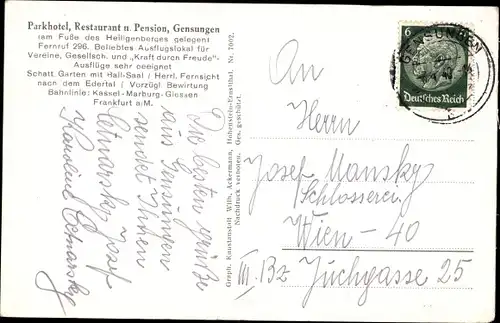 Parkhotel, Restaurant u. Pension, Gensungen
am Fuße des Heiligenberges gelegen!
Fernruf 296. Beliebtes Ausflugslokal für
Vereine, Gesellsch. und „Kraft durch Freude"-
Ausflüge sehr geeignet
Schatt. Garten mit Hall-Saal / Herrl. Fernsicht
nach dem Edertal / Vorzügl. Bewirtung
Bahnlinie: Kassel-Marburg-Giessen
Frankfurt a/M.
Die besten Grüße
aus Gensungen
sendet Ihnen
Josef
Karoline
Graph. Kunstanstalt Wilh. Ackermann, Hohenstein-Ernstthal. Nr. 7002.
Nachdruck verboten. Ges. geschützt.
6
Deutsches Reich
GENSUNGEN
An
Herrn
Josef Mansky
Schlosserei
Wien - 40
III. Bz Juchgasse 25